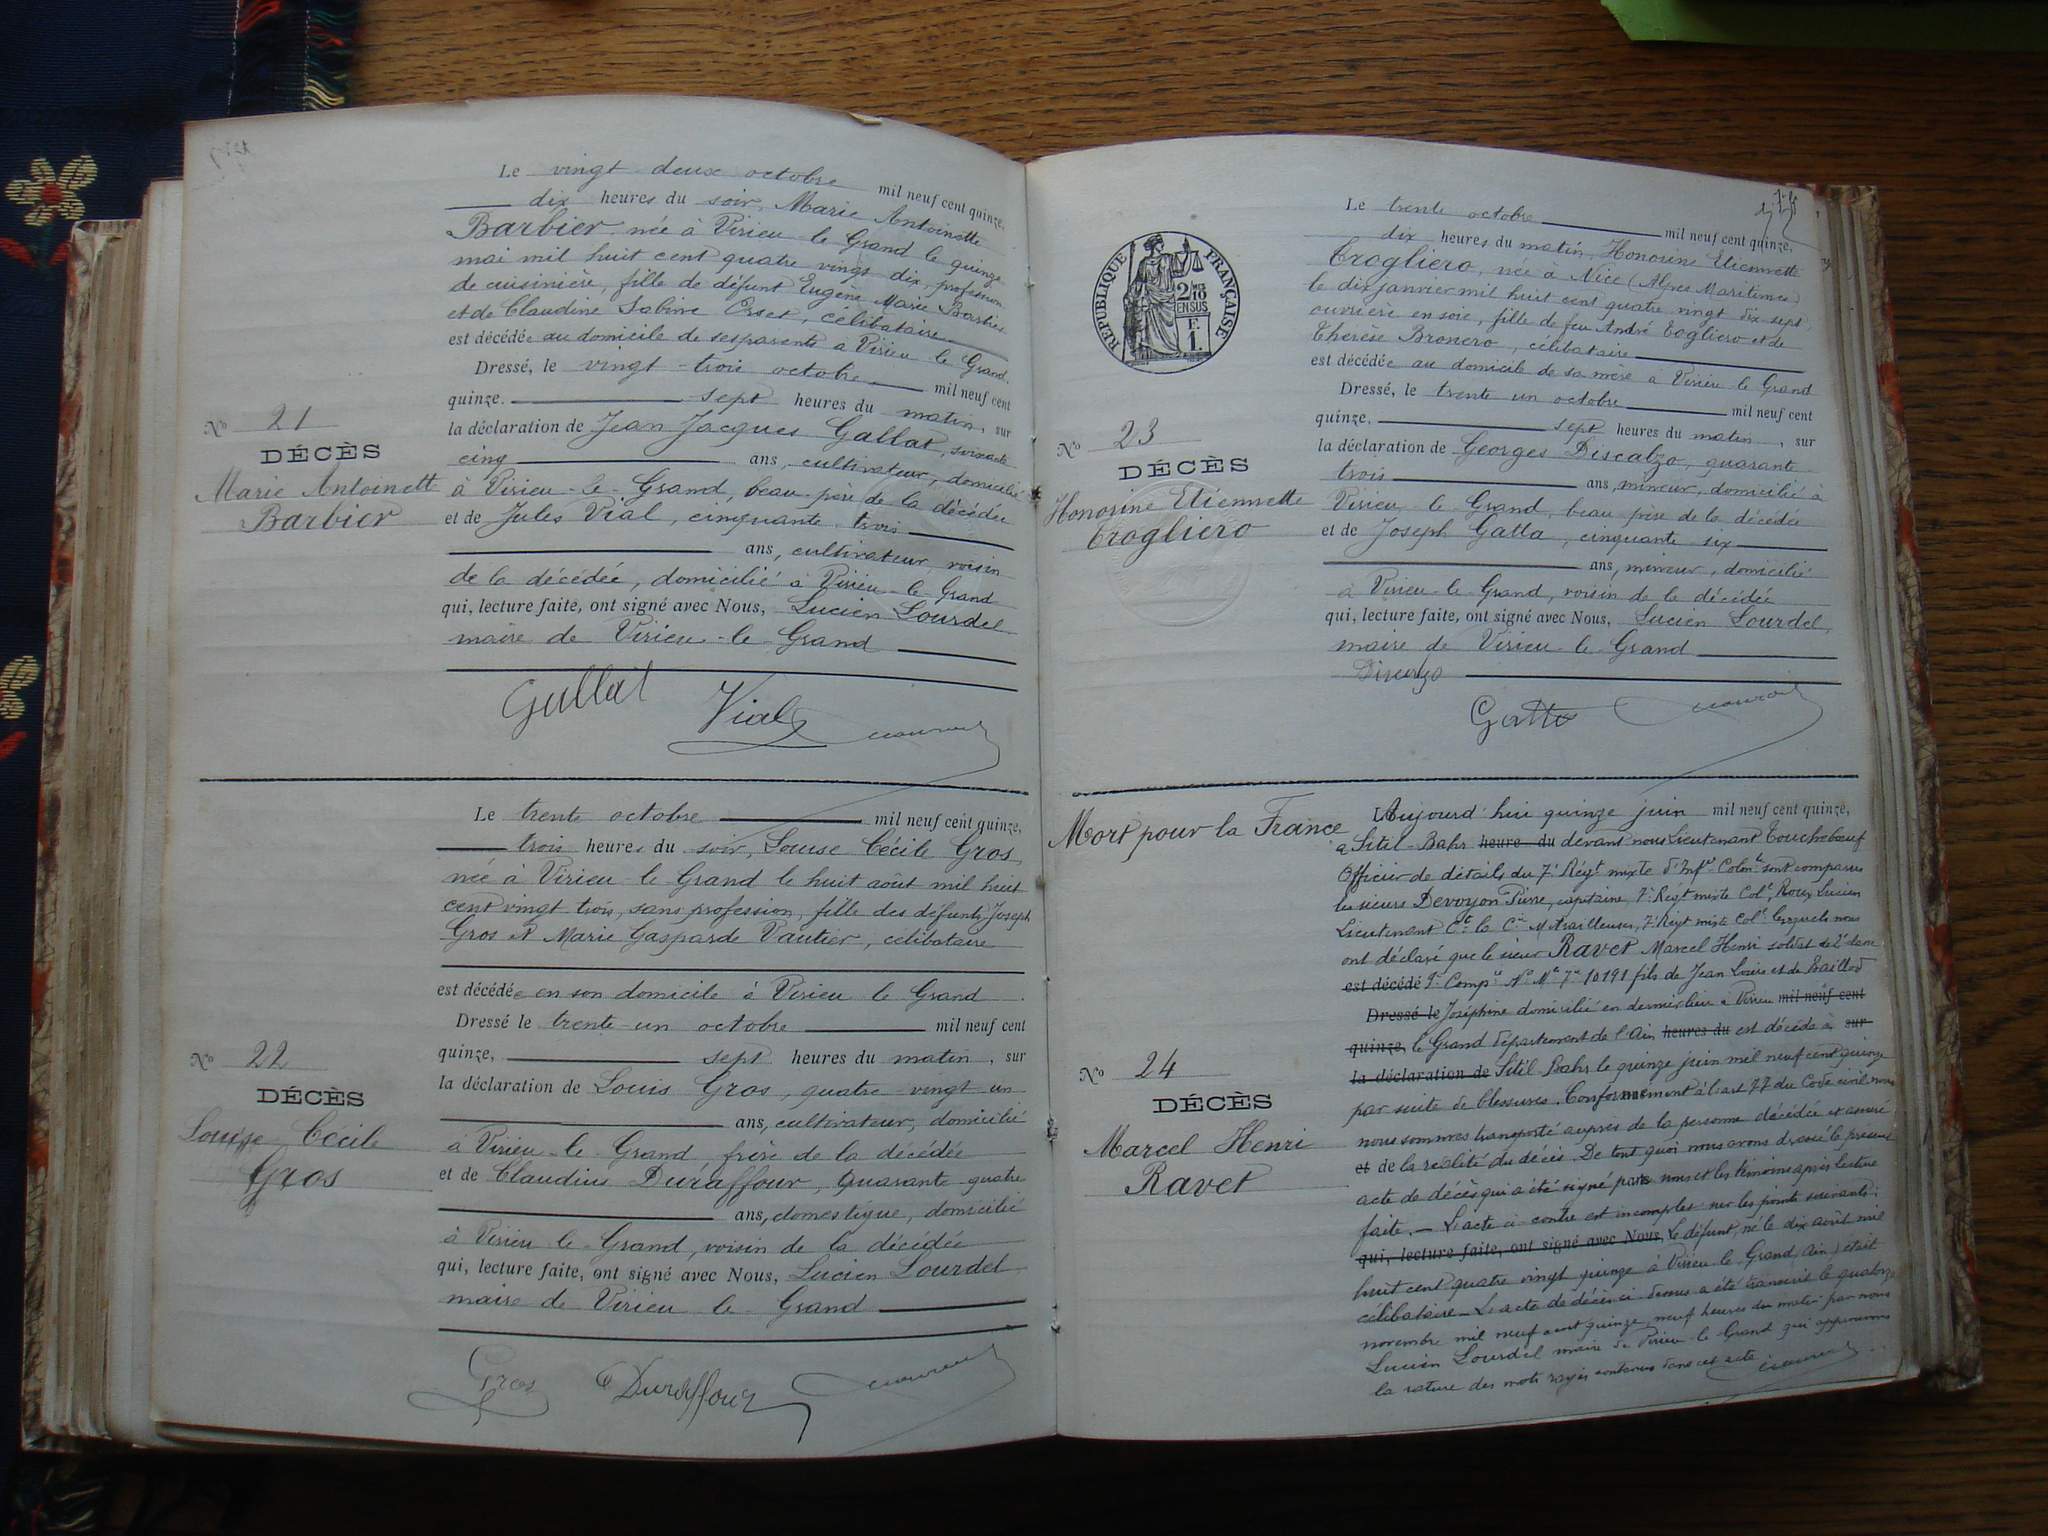 Le vingt deux octobre mil neuf cent quinze,
dix heures du soir, Marie Antoinette
Barbier née à Virieu le Grand le quinze
mai mil huit cent quatre vingt dix, profession
de cuisinière, fille de défunt Eugène Marie Barbier
et de Claudine Sabine, célibataire
est décédée au domicile de ses parents à Virieu le Grand.
Dressé, le vingt-trois octobre mil neuf cent
quinze. sept heures du matin, sur
la déclaration de Jean Jacques Gallat, soixante
cinq ans, cultivateur, domicilié
à Virieu-le-Grand, beau-père de la décédée
et de Jules Vial, cinquante-trois
ans, cultivateur, voisin
de la décédée, domicilié à Virieu-le-Grand
qui, lecture faite, ont signé avec Nous, Lucien Lourdel
maire de Virieu-le-Grand
Gallat Vial
No 21
DÉCÈS
Marie Antoinette
Barbier
Le trente octobre mil neuf cent quinze,
trois heures du soir, Louise Cécile Gros,
née à Virieu le Grand le huit août mil huit
cent vingt trois, sans profession, fille des défunts Joseph
Gros et Marie Gasparde Vautier, célibataire
est décédée en son domicile à Virieu le Grand.
Dressé le trente-un octobre mil neuf cent
quinze, sept heures du matin, sur
la déclaration de Louis Gros, quatre-vingt un
ans, cultivateur, domicilié
à Virieu-le-Grand, frère de la décédée
et de Claudius Duraffour, quarante-quatre
ans, domestique, domicilié
à Virieu le-Grand, voisin de la décédée
qui, lecture faite, ont signé avec Nous, Lucien Lourdel
maire de Virieu le Grand
Gros C Duraffour
No 22
DÉCÈS
Louise Cécile
Gros
RÉPUBLIQUE FRANÇAISE
2/10
EN SUS
F.
1.
Le trente octobre mil neuf cent quinze,
dix heures du matin, Honorine Etiennette
Trogliero, née à Nice (Alpes Maritimes)
le dix janvier mil huit cent quatre vingt dix sept,
ouvrière en soie, fille de feu André Togliero et de
Therèse Bronero, célibataire
est décédée au domicile de sa mère à Virieu le Grand
Dressé, le trente un octobre mil neuf cent
quinze. sept heures du matin, sur
la déclaration de Georges Discalzo, quarante-
trois ans, mineur, domicilié à
Virieu-le-Grand, beau père de la décédée
et de Joseph Gatta, cinquante-six
ans, mineur, domicilié
à Virieu-le-Grand, voisin de la décédée
qui, lecture faite, ont signé avec Nous, Lucien Lourdel,
maire de Virieu-le-Grand
Gatto
No 23
DÉCÈS
Honorine Etiennette
Trogliero
Mort pour la France
Aujourd'hui quinze juin mil neuf cent quinze,
à Sitil-Bahr heure du devant nous Lieutenant Toucheboeuf
Officier de détails du 7e Régt mixte d'Infie Colonle sont comparus
les sieurs Devoyon Pierre, capitaine, 7e Régt mixte Coll, Roux Lucien
Lieutenant Ct la Cie Mitrailleuses, 7e Régt mixte Coll lesquels nous
ont déclaré que le sieur Ravet Marcel Henri soldat de 2e classe
est décédé Compie No Mle 10191 fils de Jean Louis et de Baillod
Dressé le Joséphine domicilié en dernier lieu à Virieu mil neuf cent
quinze, le Grand département de l'Ain heures du est décédé à sur
la déclaration de Sitil-Bahr le quinze juin mil neuf cent quinze
par suite de blessures. Conformément à l'art 77 du Code civil nous
nous sommes transporté auprès de la personne décédée et assuré
et de la réalité du décès. De tout quoi nous avons dressé le présent
acte de décès qui a été signé par nous et les témoins après lecture
faite. — L'acte ci-contre est incomplet sur les points suivants:
qui, lecture faite, ont signé avec Nous, Le défunt, né le dix août mil
huit cent quatre vingt quinze à Virieu le Grand (Ain) était
célibataire — L'acte de décès ci-dessus a été transcrit le quatorze
novembre mil neuf cent quinze, neuf heures du matin par nous
Lucien Lourdel maire de Virieu-le-Grand qui approuvons
la rature des mots rayés contenus dans cet acte.
No 24
DÉCÈS
Marcel Henri
Ravet